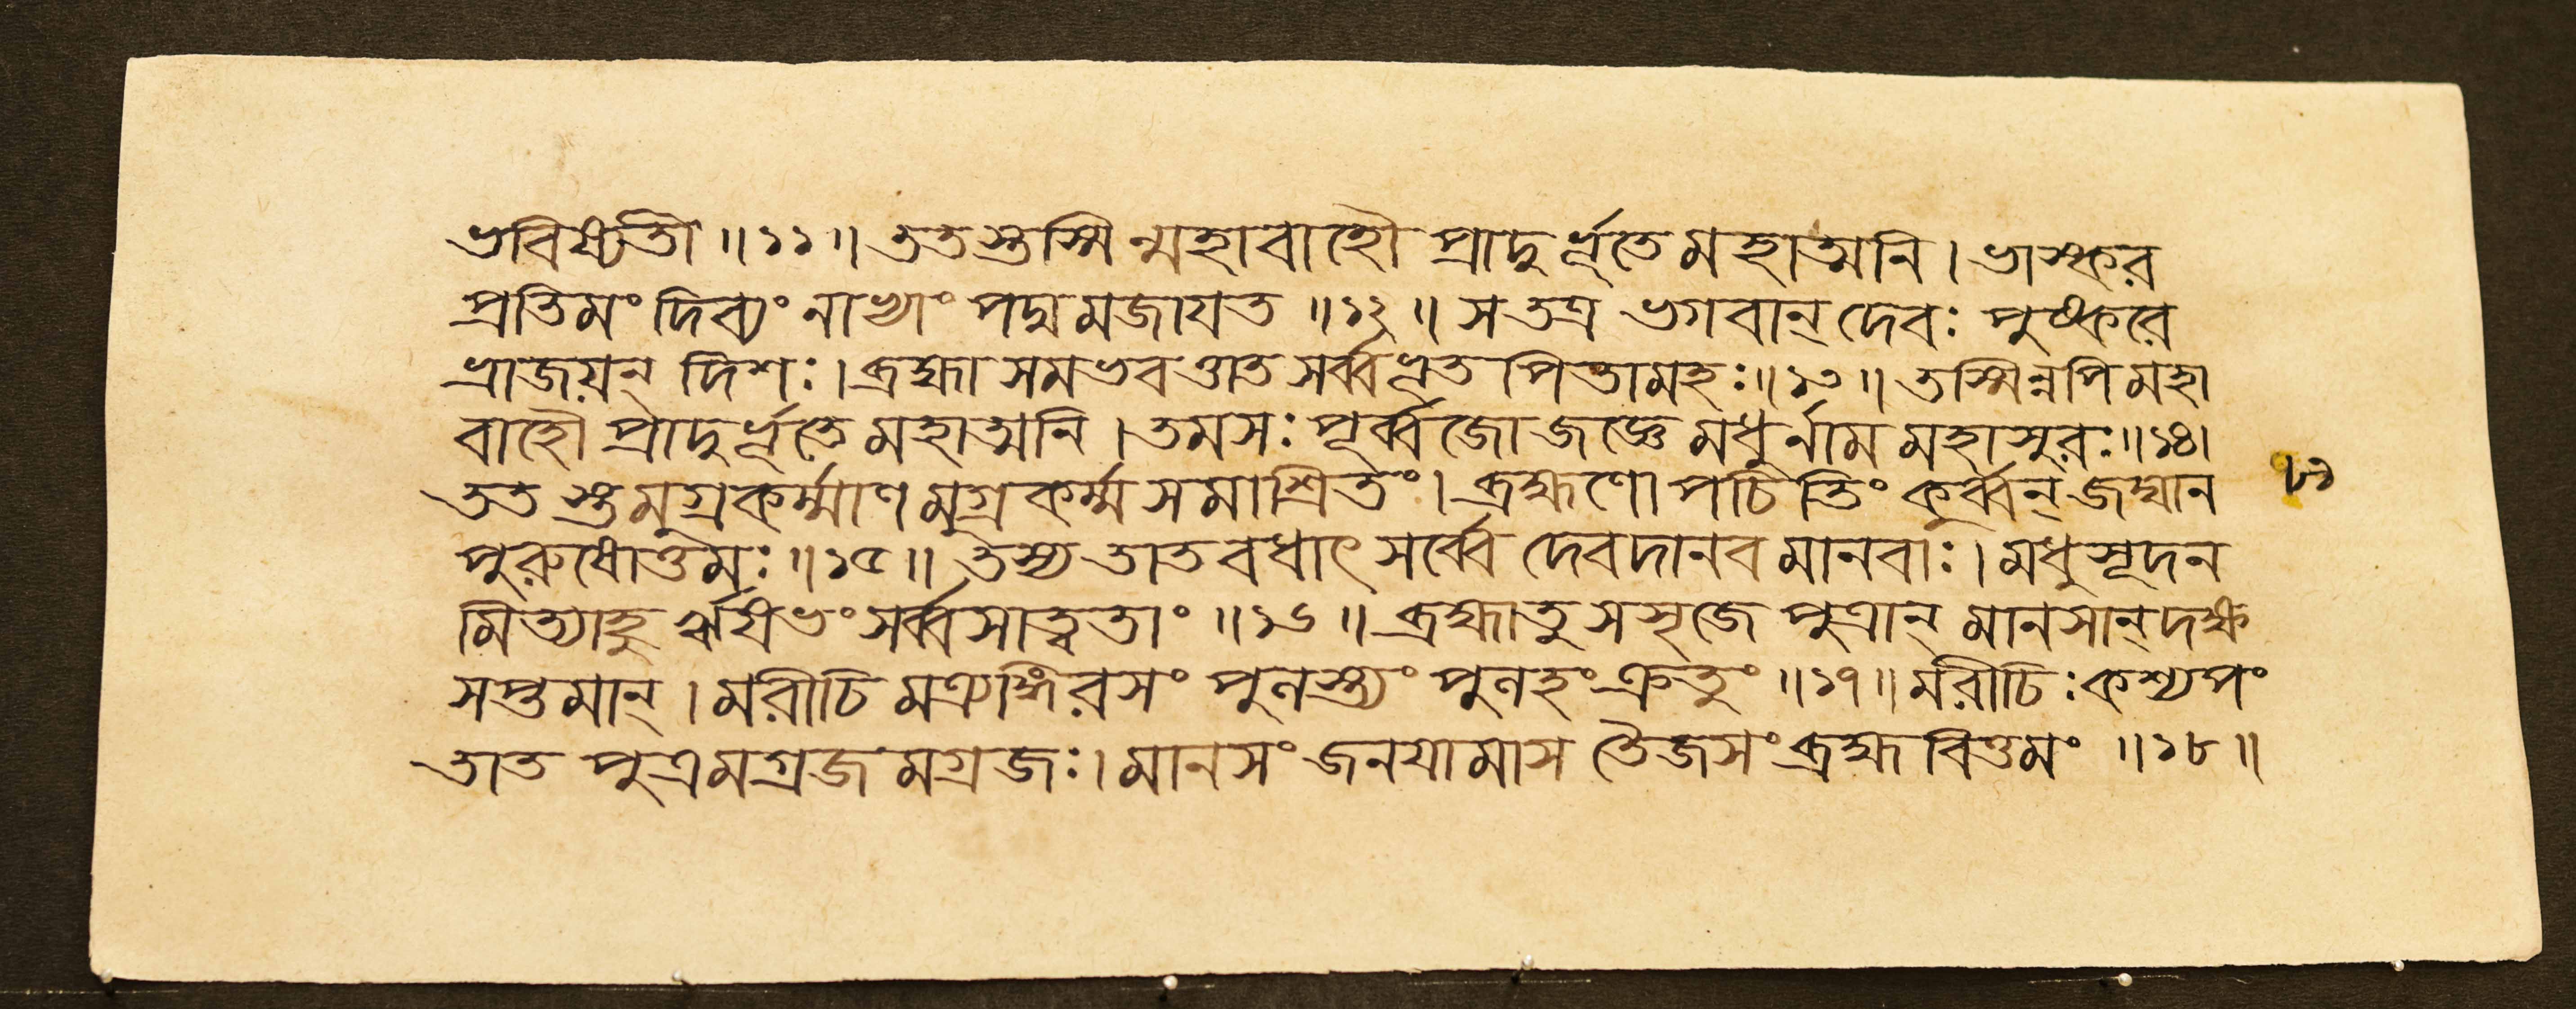 ভবিষ্যতী ॥ ১১ ॥ ততস্তস্মিন্মহাবাহৌ প্রাদুর্ভূতে মহাত্মনি । ভাস্কর
প্রতিমং দিব্যং নাভ্যাং পদ্মমজাযত ॥ ১২ ॥ স তত্র ভগবান্ দেবঃ পুষ্করে
ভ্রাজয়ন্ দিশঃ । ব্রহ্মা সমভবত্তাত সর্ব্বভূত পিতামহঃ ॥ ১৩ ॥ তস্মিন্নপি মহা
বাহৌ প্রাদুর্ভূতে মহাত্মনি । তমসঃ পূর্ব্বজো জজ্ঞে মধুর্নাম মহাসুরঃ ॥ ১৪ ।
তত স্তমুগ্রকর্ম্মাণমুগ্রকর্ম্ম সমাশ্রিতং । ব্রহ্মণোপচিতিং কুর্ব্বন্ জঘান
পুরুষোত্তমঃ ॥ ১৫ ॥ তস্য তাত বধাৎ সর্ব্বে দেবদানব মানবাঃ । মধুসূদন
মিত্যাহু র্ঋষভং সর্ব্বসাত্বতাং ॥ ১৬ ॥ ব্রহ্মাতু সসৃজে পুত্রান্ মানসান্ দক্ষ
সপ্তমান্ । মরীচি মত্র্যঙ্গিরসং পুলস্ত্যং পুলহং ক্রতুং ॥ ১৭ ॥ মরীচিঃ কশ্যপং
তাত পুত্রমগ্রজমগ্রজঃ । মানসং জনযামাস তৈজসং ব্রহ্ম বিত্তমং ॥ ১৮ ॥